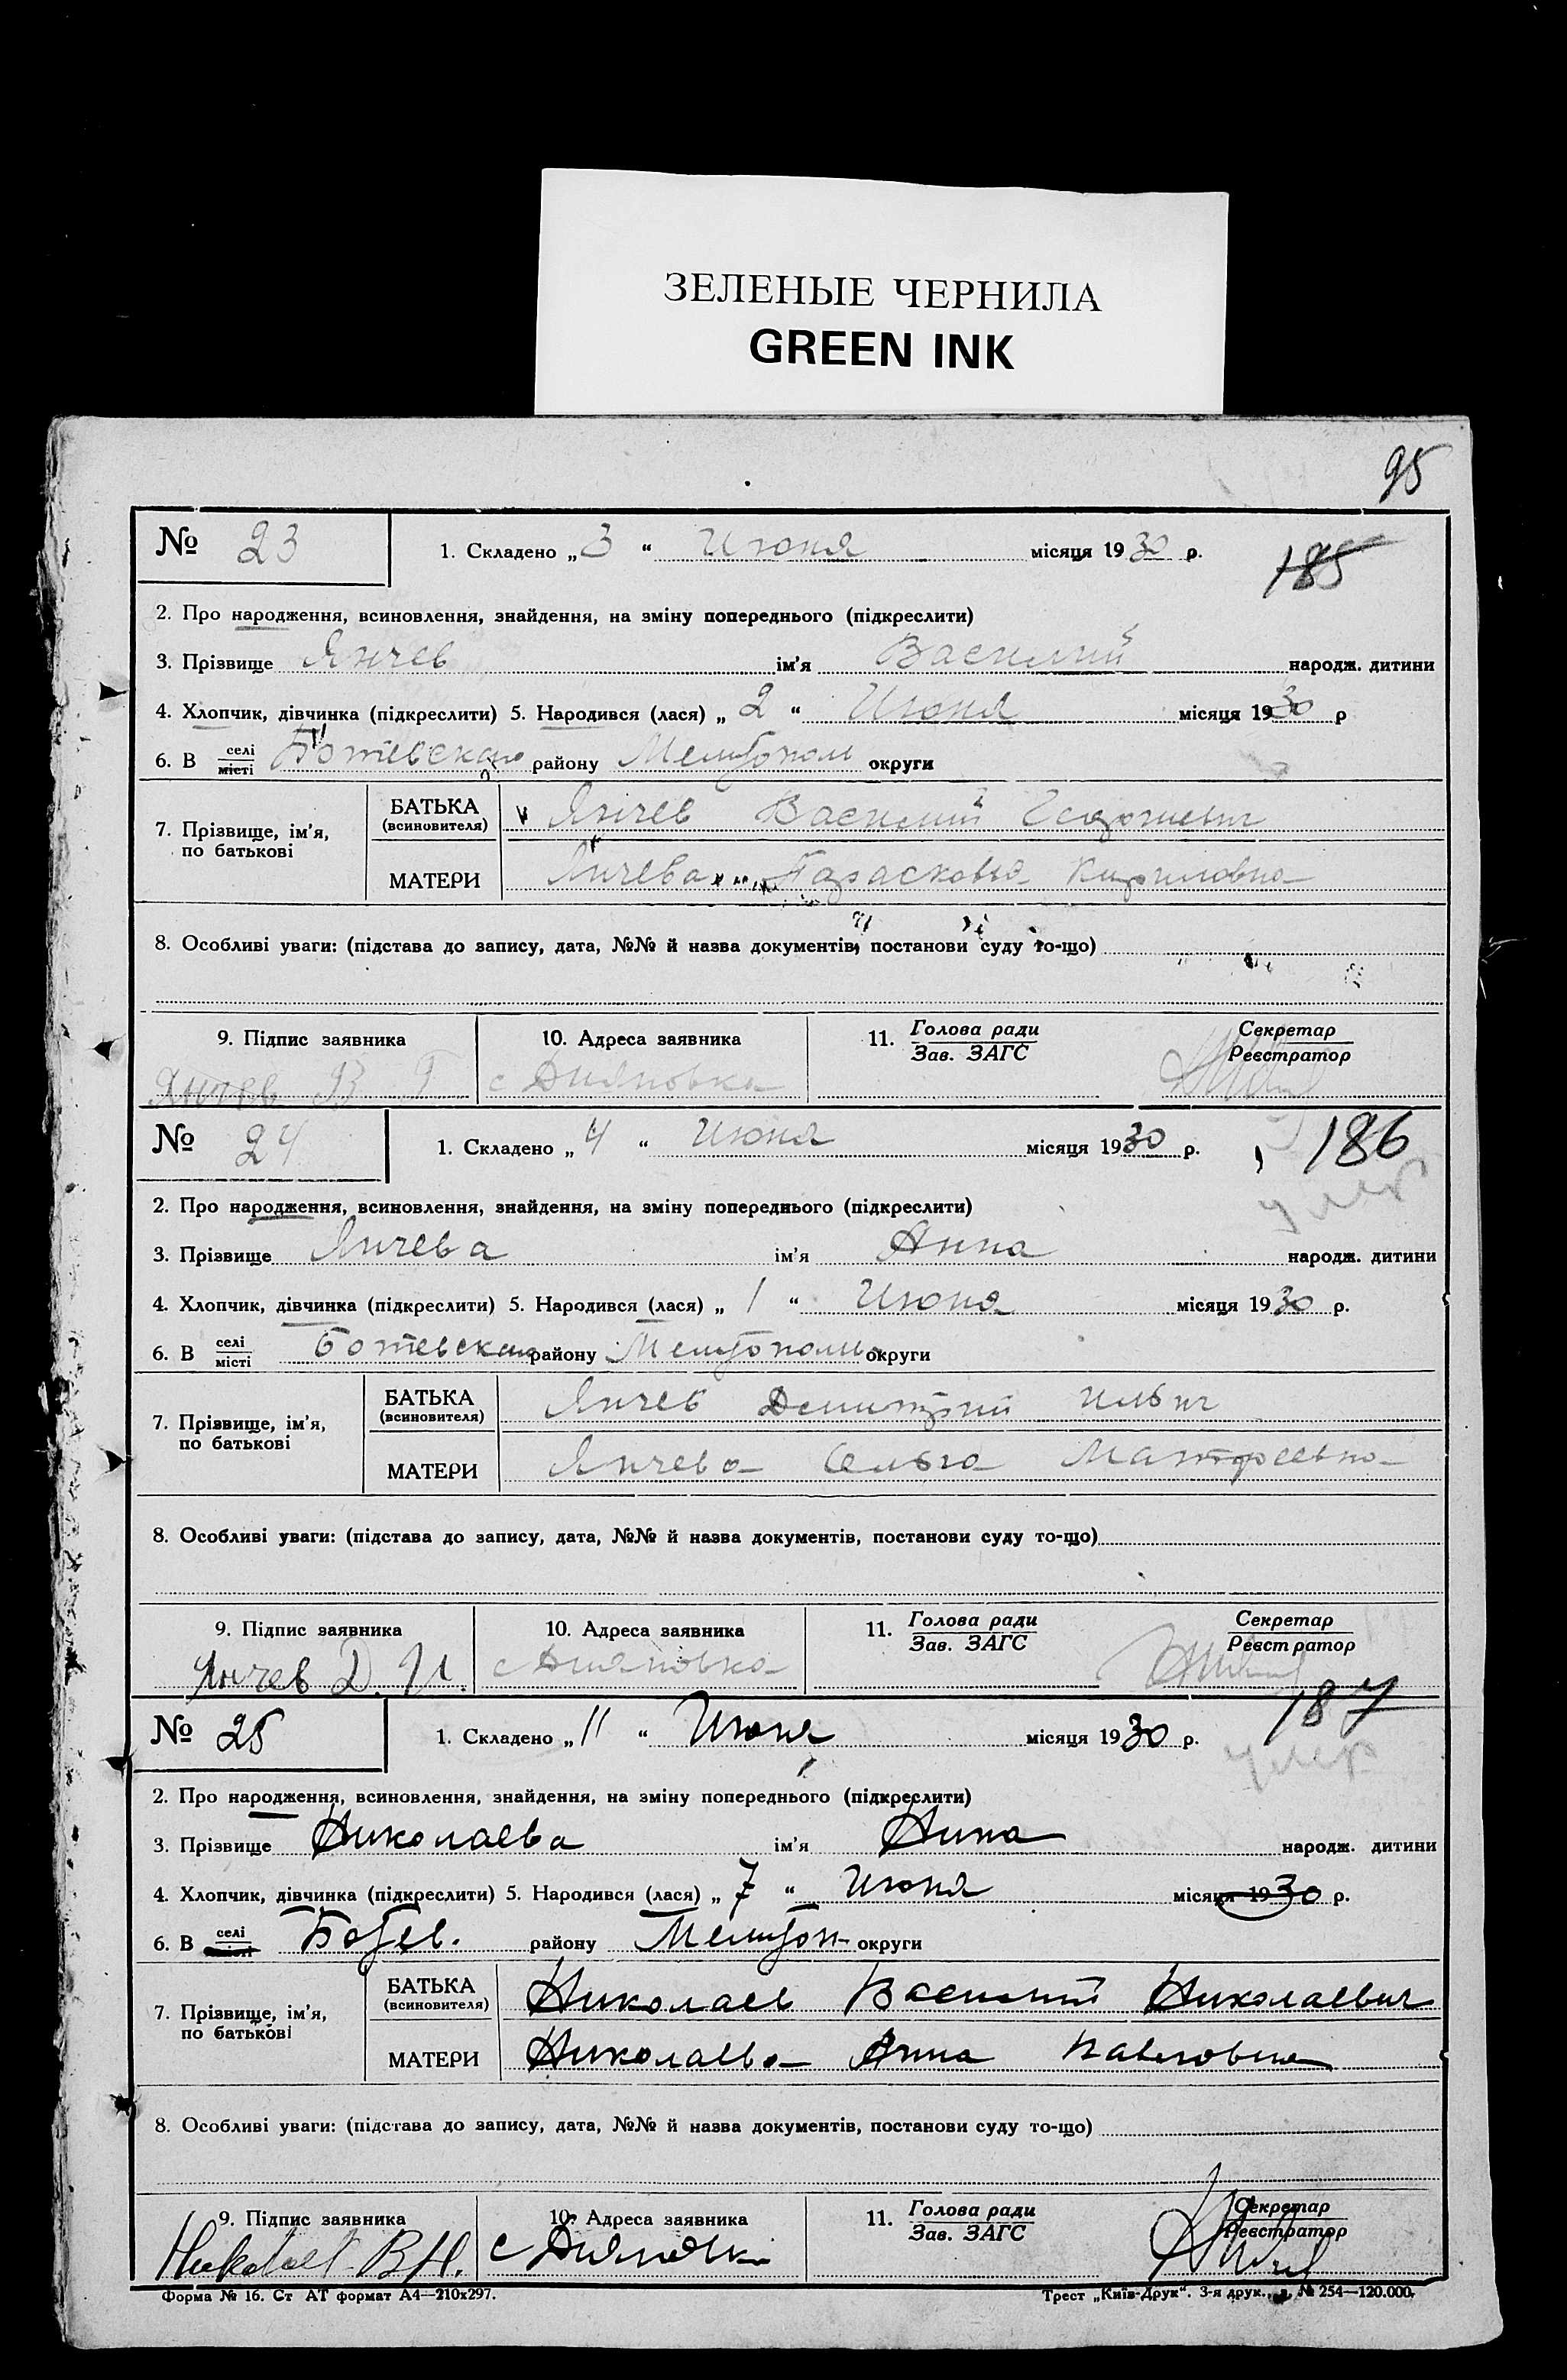 ЗЕЛЕНЫЕ ЧЕРНИЛА
GREEN INK
95
№ 23 1. Складено „3“ Июня місяця 1930 р.
185
2. Про народження, всиновлення, знайдення, на зміну попереднього (підкреслити)
3. Прізвище Янчев ім'я Василий народж. дитини
4. Хлопчик, дівчинка (підкреслити) 5. Народився (лася) „2“ Июня місяця 1930 р
6. В селі місті Ботевская району Мелитополь округи
7. Прізвище, ім'я, по батькові
БАТЬКА (всиновителя) Янчев Василий Георгиевич
МАТЕРИ Янчева Парасковья Кириловна
8. Особливі уваги: (підстава до запису, дата, №№ й назва документів, постанови суду то-що)
9. Підпис заявника 10. Адреса заявника 11. Голова ради Зав. ЗАГС Секретар Реєстратор
Янчев В Г с Дияновка
№ 24 1. Складено „4“ Июня місяця 1930 р.
186
умер
2. Про народження, всиновлення, знайдення, на зміну попереднього (підкреслити)
3. Прізвище Янчева ім'я Анна народж. дитини
4. Хлопчик, дівчинка (підкреслити) 5. Народився (лася) „1“ Июня місяця 1930 р.
6. В селі місті Ботевская району Мелитополь округи
7. Прізвище, ім'я, по батькові
БАТЬКА (всиновителя) Янчев Демитрий Ильич
МАТЕРИ Янчева Ольга Матфеевна
8. Особливі уваги: (підстава до запису, дата, №№ й назва документів, постанови суду то-що)
9. Підпис заявника 10. Адреса заявника 11. Голова ради Зав. ЗАГС Секретар Реєстратор
Янчев Д. И. с Дияновка
187
№ 25 1. Складено „11“ Июня місяця 1930 р.
умер
2. Про народження, всиновлення, знайдення, на зміну попереднього (підкреслити)
3. Прізвище Николаева ім'я Нина народж. дитини
4. Хлопчик, дівчинка (підкреслити) 5. Народився (лася) „7“ Июня місяця 1930 р.
6. В селі місті Ботев. району Мелитоп округи
7. Прізвище, ім'я, по батькові
БАТЬКА (всиновителя) Николаев Василий Николаевич
МАТЕРИ Николаева Анна Павловна
8. Особливі уваги: (підстава до запису, дата, №№ й назва документів, постанови суду то-що)
9. Підпис заявника 10. Адреса заявника 11. Голова ради Зав. ЗАГС Секретар Реєстратор
Николаев В.Н. с Дияновки
Форма № 16. Ст АТ формат А4—210х297.
Трест „Київ-Друк“. 3-я друк., з. № 254—120.000.